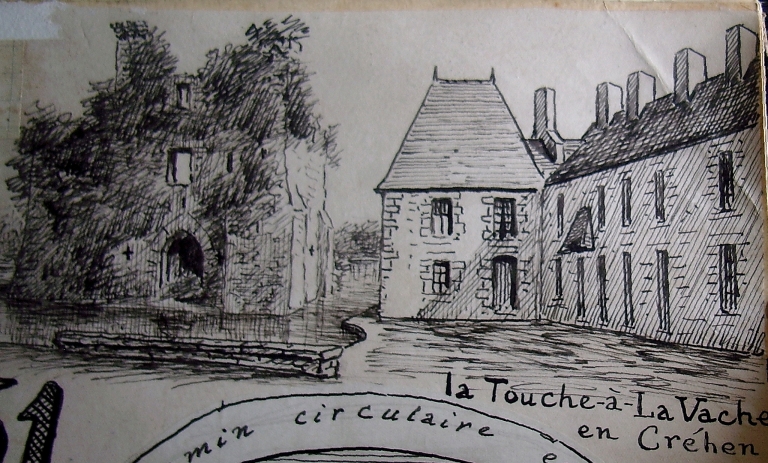 la Touche-à-La Vache
en Créhen
51
min circulaire
e